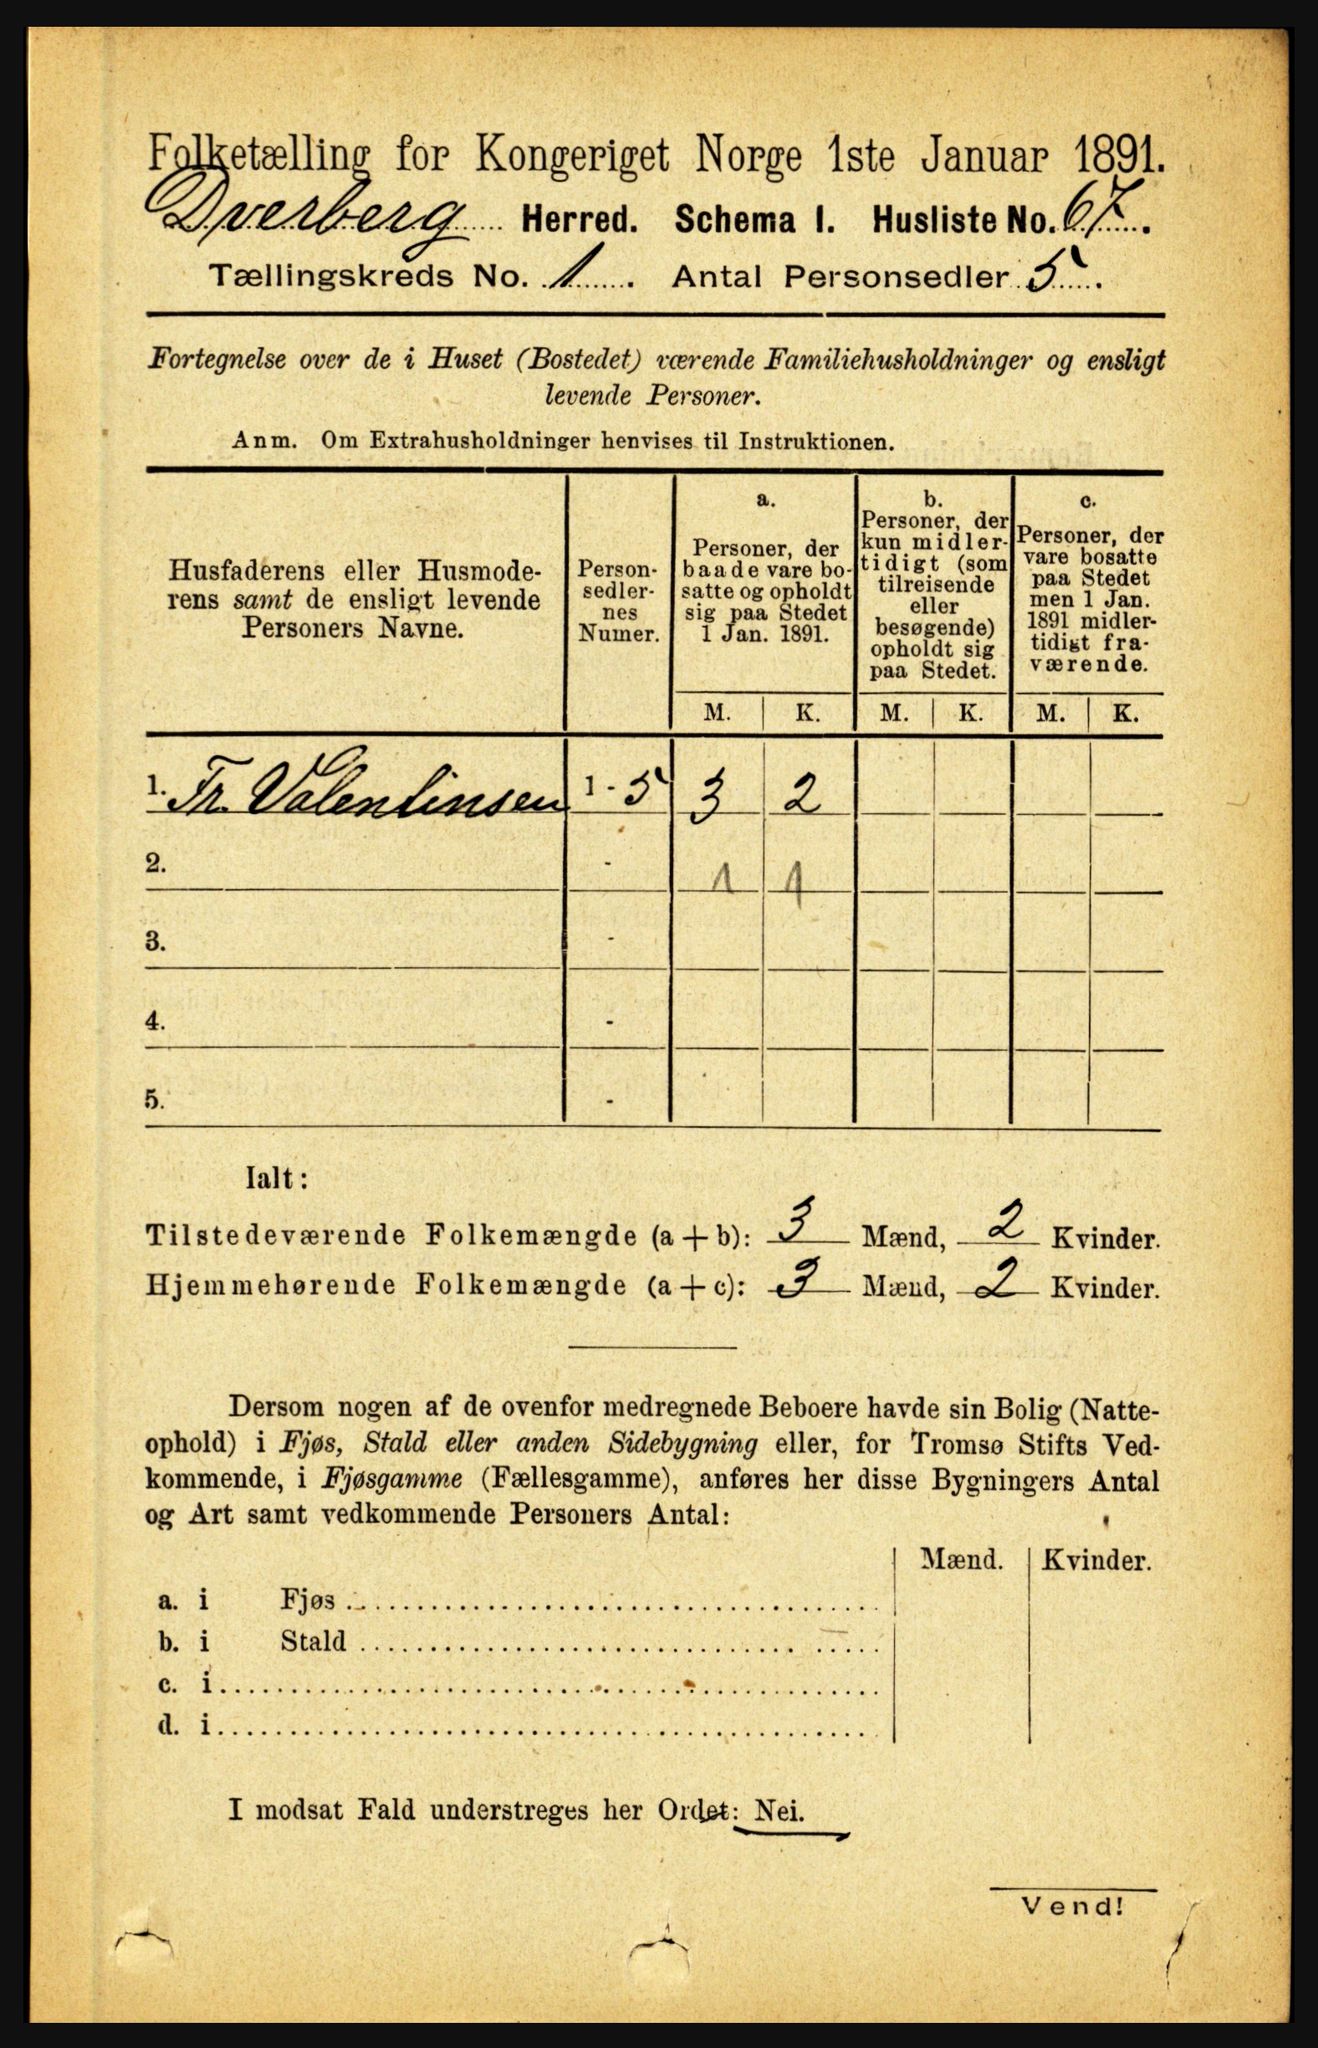 Folketælling for Kongeriget Norge 1ste Januar 1891.
Dverberg Herred. Schema I. Husliste No. 67.
Tællingskreds No. 1. Antal Personsedler 5.
Fortegnelse over de i Huset (Bostedet) værende Familiehusholdninger og ensligt
levende Personer.
Anm. Om Extrahusholdninger henvises til Instruktionen.
Husfaderens eller Husmode-
rens samt de ensligt levende
Personers Navne.
Person-
sedler-
nes
Numer.
a.
Personer, der
baade vare bo-
satte og opholdt
sig paa Stedet
1 Jan. 1891.
b.
Personer, der
kun midler-
tidigt (som
tilreisende
eller
besøgende)
opholdt sig
paa Stedet.
c.
Personer, der
vare bosatte
paa Stedet
men 1 Jan.
1891 midler-
tidigt fra-
værende.
M. K. M. K. M. K.
1. Fr. Valentinsen 1 - 5 3 2
2. - 1 1
3. -
4. -
5. -
Ialt:
Tilstedeværende Folkemængde (a + b): 3 Mænd, 2 Kvinder.
Hjemmehørende Folkemængde (a + c): 3 Mænd, 2 Kvinder.
Dersom nogen af de ovenfor medregnede Beboere havde sin Bolig (Natte-
ophold) i Fjøs, Stald eller anden Sidebygning eller, for Tromsø Stifts Ved-
kommende, i Fjøsgamme (Fællesgamme), anføres her disse Bygningers Antal
og Art samt vedkommende Personers Antal:
Mænd. Kvinder.
a. i Fjøs
b. i Stald
c. i
d. i
I modsat Fald understreges her Ordet: Nei.
Vend!